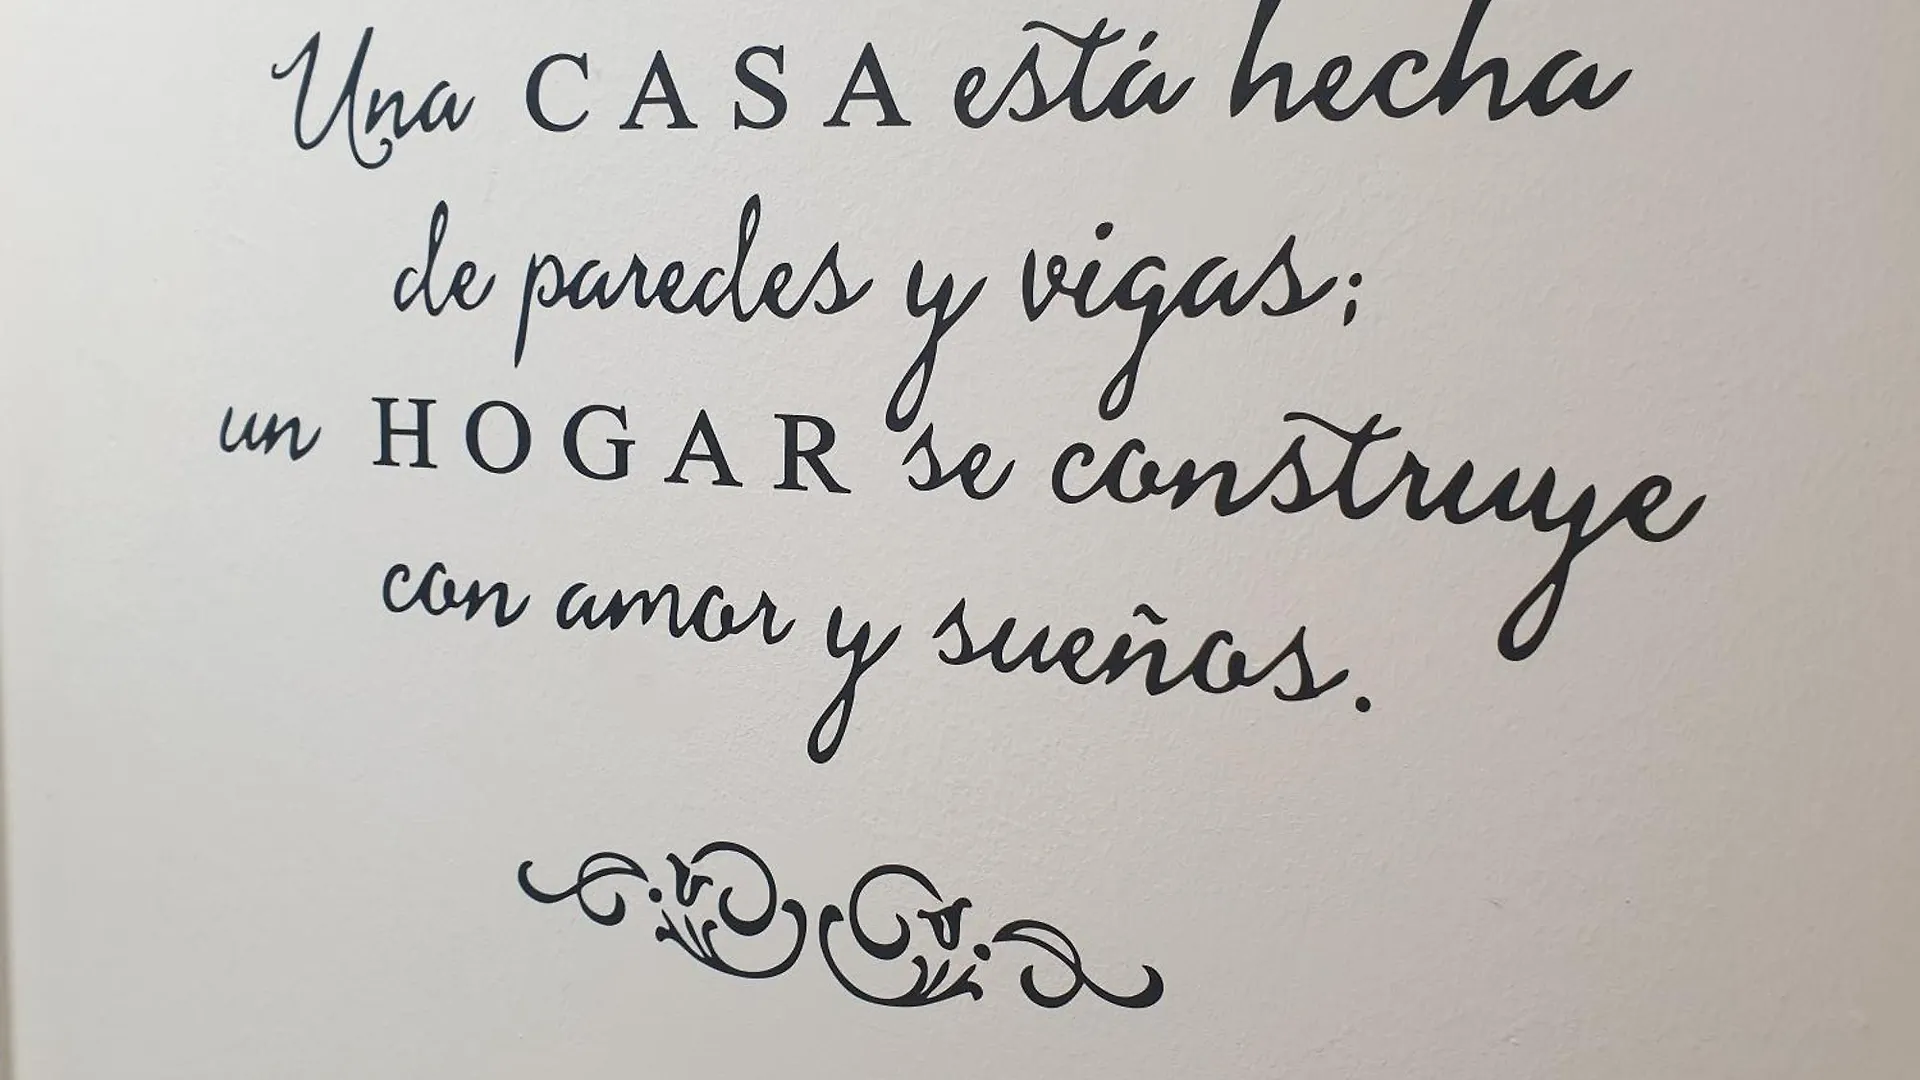 Una CASA está hecha
de paredes y vigas;
un HOGAR se construye
con amor y sueños.